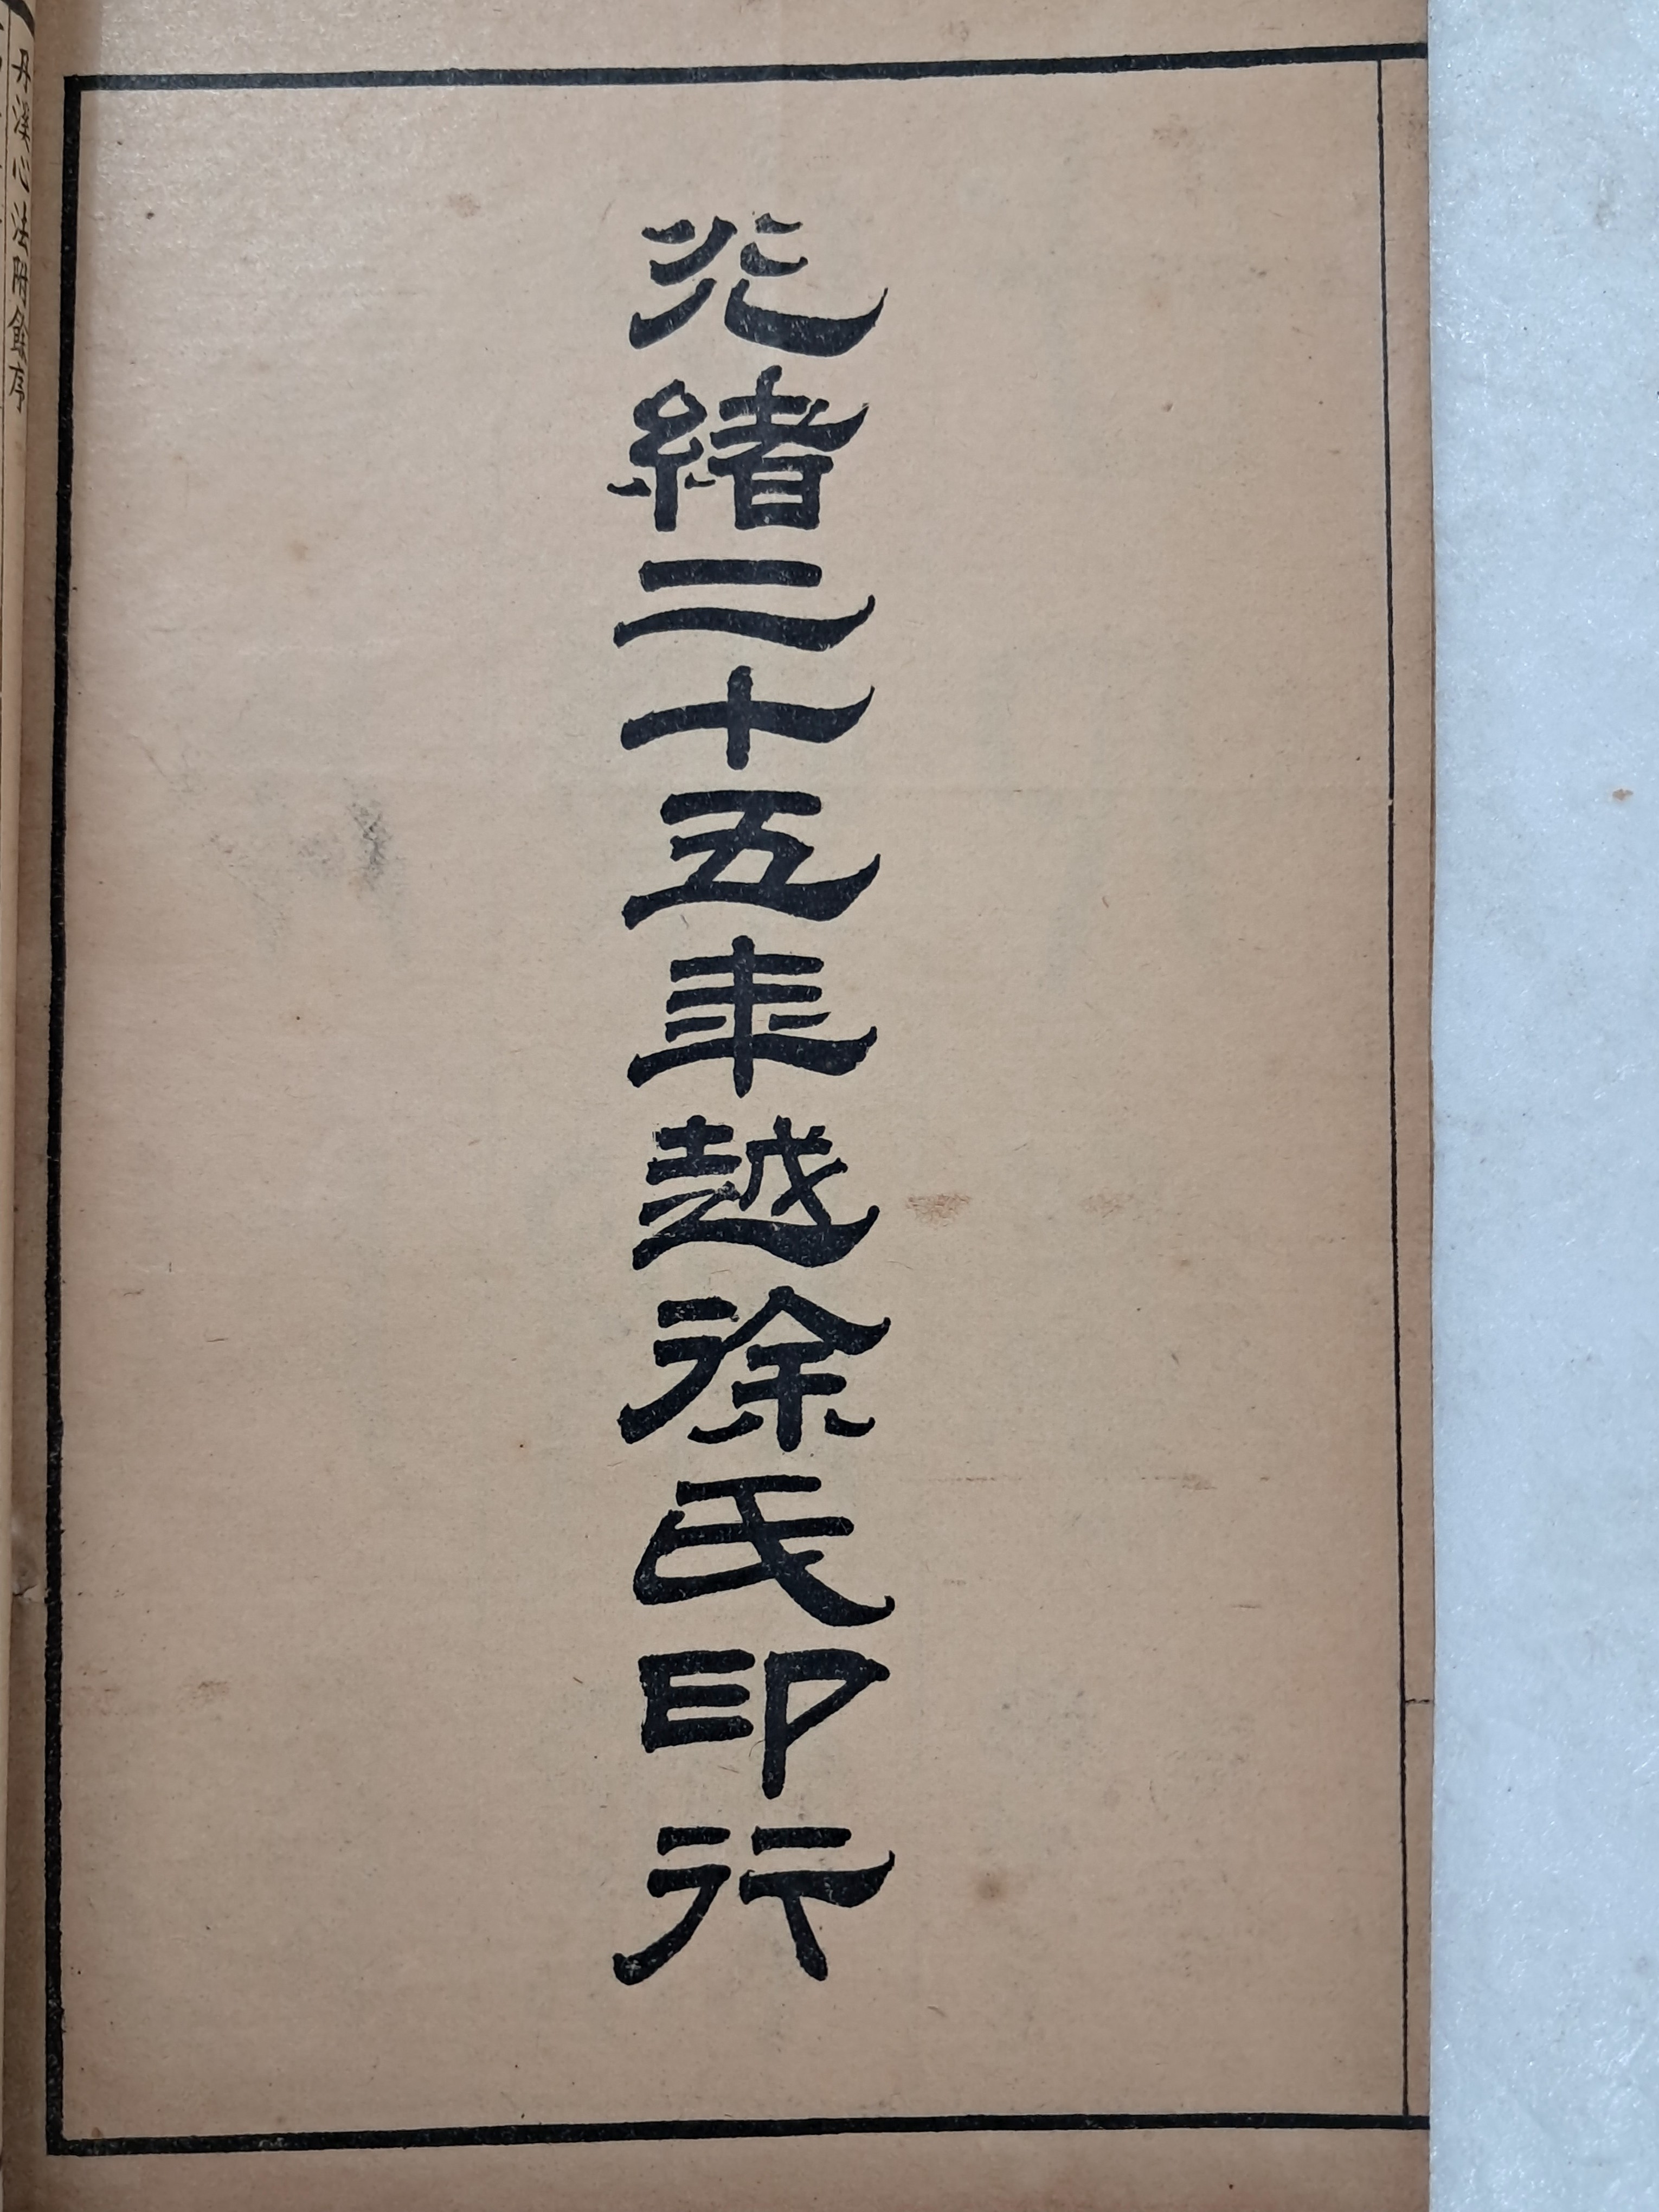 光緒二十五年越徐氏印行
丹溪心法附餘序